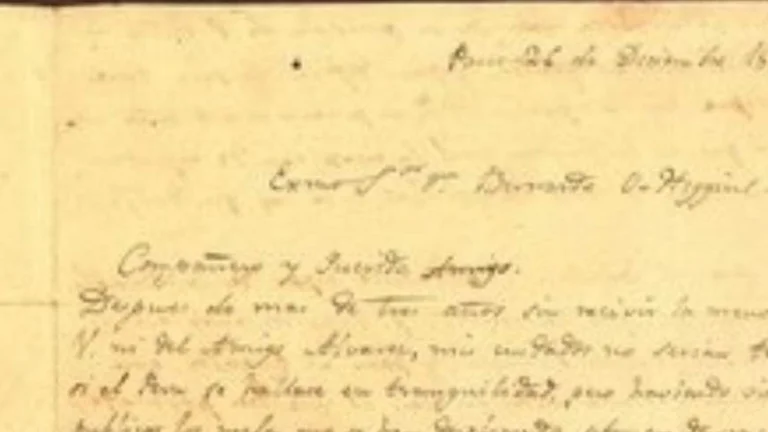 26 de Diciembre 18
Exmo Sr. Dn. Bernardo O-Higgins
Compañero y Querido Amigo.
Despues de mas de tres años sin recivir la menor
V. ni del Amigo Alvarez, mis cuidados no serian
si el Perú se hallase en tranquilidad, pero haviendo
publicos los